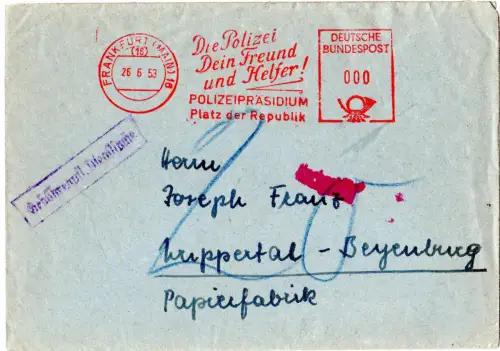 FRANKFURT (MAIN) 16
(16)
26 6 53
Die Polizei
Dein Freund
und Helfer!
POLIZEIPRÄSIDIUM
Platz der Republik
DEUTSCHE
BUNDESPOST
000
Gebührenpfl. Dienstsache
25
Herrn
Joseph Franz
Wuppertal - Beyenburg
Papierfabrik